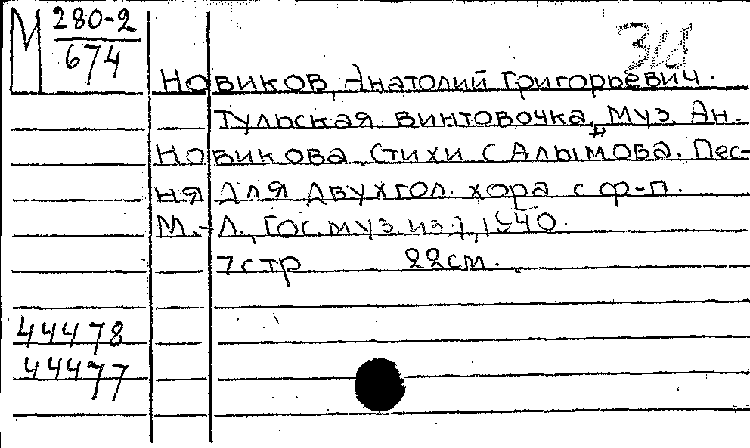 М 280-2
674
318
Новиков, Анатолий Григорьевич.
Тульская винтовочка, Муз. Ан.
Новикова. Стихи С Алымова. Пес-
ня для двухгол. хора с ф-п.
М.-Л., Гос. муз. изд, 1940.
7 стр 22 см.
44478
44477